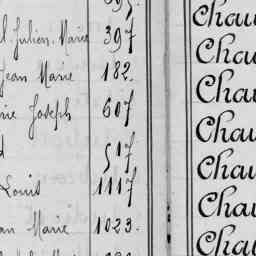 395.
l. Julien. Marie 397
Jean Marie 182.
rie Joseph 607
d 517
Louis 1117
an Marie 1023.
Chau
Chau
Chau
Chau
Chau
Chau
Chau